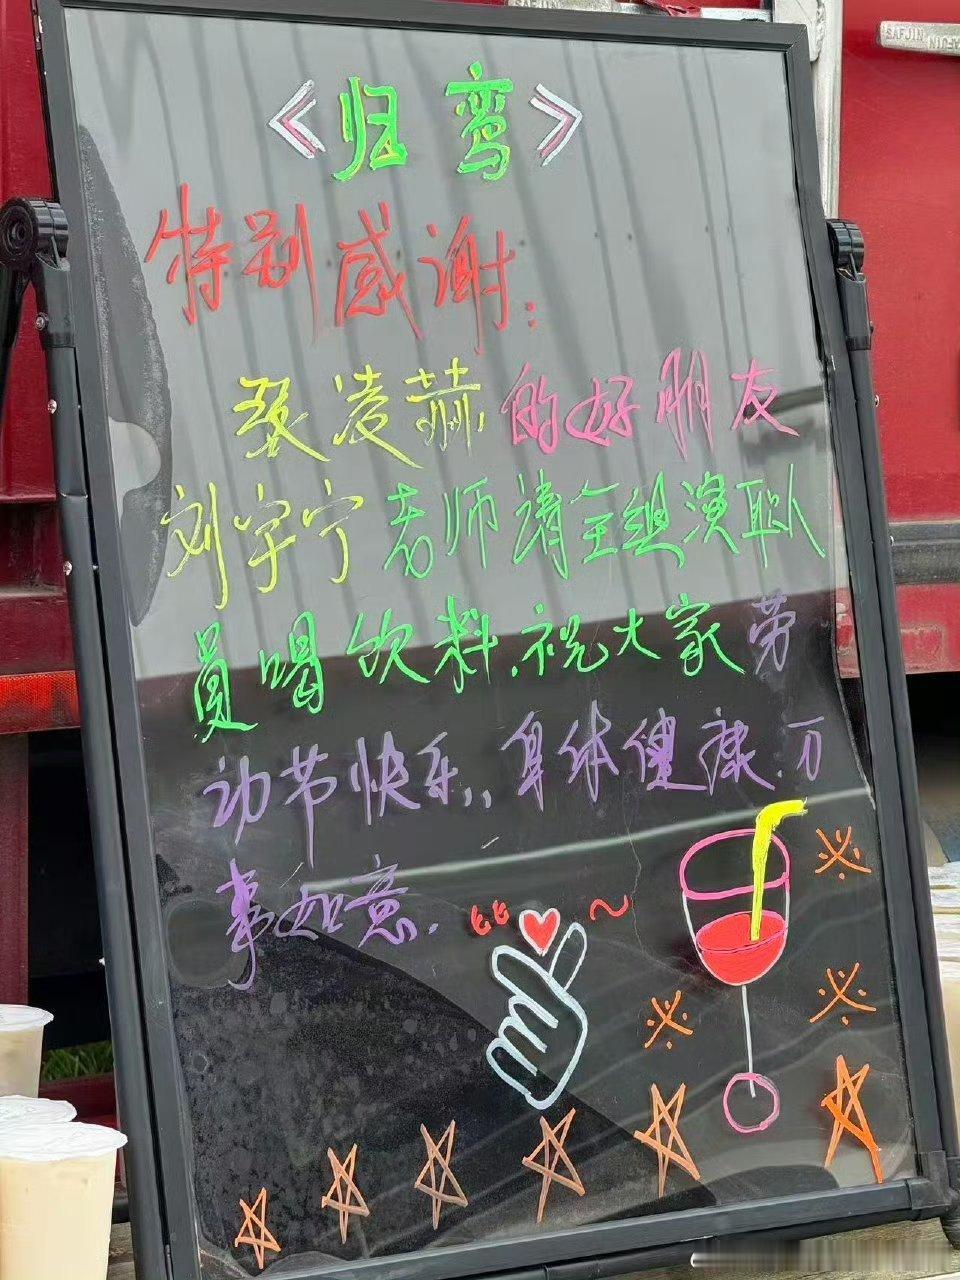 SAFJIN
SAFJIN
《归鸾》
特别感谢：
张凌赫的好朋友
刘宇宁老师请全组演职
员喝饮料，祝大家劳
动节快乐，身体健康，万
事如意．